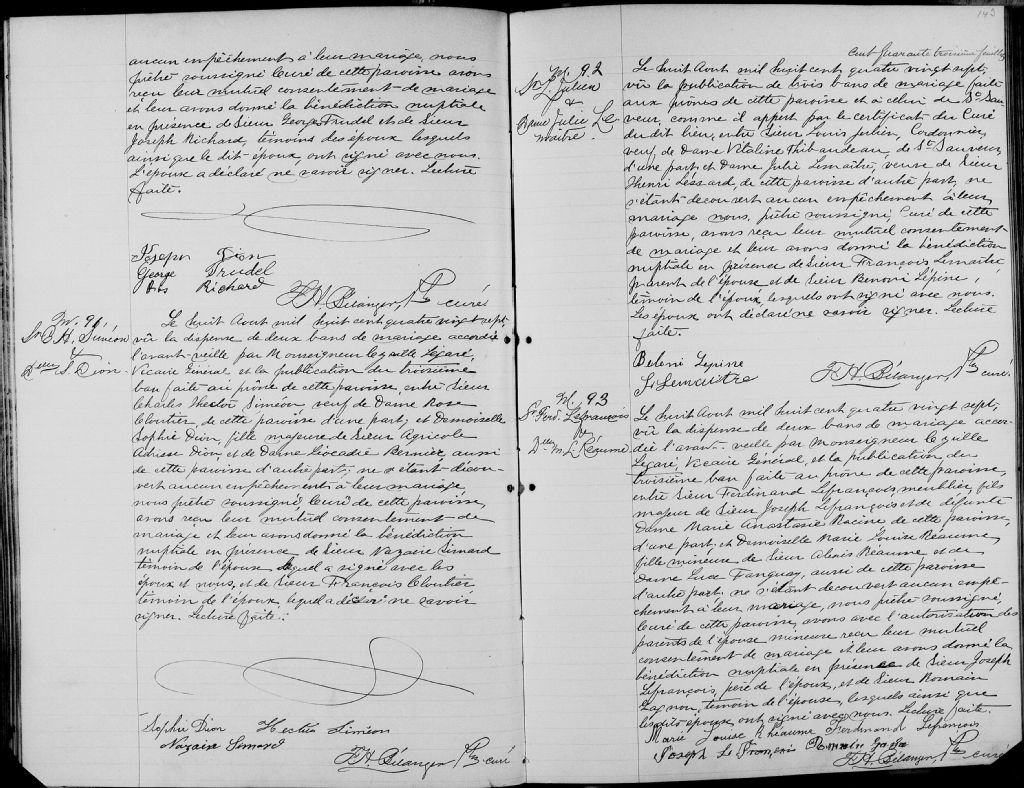 aucun empêchement à leur mariage, nous
prêtre soussigné Curé de cette paroisse avons
reçu leur mutuel consentement de mariage
et leur avons donné la bénédiction nuptiale
en présence de Sieur George Trudel et de Sieur
Joseph Richard, témoins des époux lesquels
ainsi que le dit époux, ont signé avec nous.
L'épouse a déclaré ne savoir signer. Lecture
faite.
Joseph Dion
George Trudel
Richard
F. H. Bélanger, Ptre curé
M. 91.
Sr C. H. Siméon
&
Delle S. Dion.
Le huit Aout mil huit cent quatre vingt sept,
vû la dispense de deux bans de mariage accordée
l'avant-veille par Monseigneur Cyrille Légaré,
Vicaire Général et la publication du troisième
ban faite au prône de cette paroisse, entre Sieur
Charles Hector Siméon, veuf de Dame Rose
Cloutier, de cette paroisse d'une part; et Demoiselle
Sophie Dion, fille majeure de Sieur Agricole
Adrien Dion, et de Dame Léocadie Bernier, aussi
de cette paroisse d'autre part; ne s'étant décou-
vert aucun empêchement à leur mariage,
nous prêtre soussigné, Curé de cette paroisse,
avons reçu leur mutuel consentement de
mariage et leur avons donné la bénédiction
nuptiale en présence de Sieur Nazaire Simard
témoin de l'époux, lequel a signé avec les
époux et nous, et de Sieur François Cloutier
témoin de l'épouse, lequel a déclaré ne savoir
signer. Lecture faite.
Sophie Dion Hector Siméon
Nazaire Simard
F. H. Bélanger Ptre curé
143
Cent quarante troisième feuillet
M. 92
Sr L. Julien
&
Dame Julie Le-
maître
Le huit Aout mil huit cent quatre vingt sept,
vû la publication de trois bans de mariage faite
aux prônes de cette paroisse et à celui de St Sau-
veur, comme il appert par le certificat du Curé
du dit lieu, entre Sieur Louis Julien, Cordonnier,
veuf de Dame Vitaline Thibaudeau, de St Sauveur,
d'une part; et Dame Julie Lemaître, veuve de Sieur
Henri Lessard, de cette paroisse d'autre part; ne
s'étant découvert aucun empêchement à leur
mariage nous, prêtre soussigné, Curé de cette
paroisse, avons reçu leur mutuel consentement
de mariage et leur avons donné la bénédiction
nuptiale en présence de Sieur François Lemaître
parent de l'épouse et de Sieur Benoni Lépine,
témoin de l'époux, lesquels ont signé avec nous.
Les époux ont déclaré ne savoir signer. Lecture
faite.
Beloni Lepine
F. H. Bélanger, Ptre curé.
M. 93
Sr Ferd. Lefrançois
&
Delle M. L. Réaume
Le huit Aout mil huit cent quatre vingt sept,
vû la dispense de deux bans de mariage accor-
dée l'avant-veille par Monseigneur Cyrille
Légaré, Vicaire Général, et la publication du
troisième ban faite au prône de cette paroisse,
entre Sieur Ferdinand Lefrançois, meublier, fils
majeur de Sieur Joseph Lefrançois et de défunte
Dame Marie Anastasie Racine de cette paroisse,
d'une part; et Demoiselle Marie Louise Réaume,
fille mineure de Sieur Alexis Réaume et de
Dame Luce Tanguay, aussi de cette paroisse
d'autre part; ne s'étant découvert aucun empê-
chement à leur mariage, nous prêtre soussigné,
Curé de cette paroisse, avons avec l'autorisation des
parents de l'épouse mineure reçu leur mutuel
consentement de mariage et leur avons donné la
bénédiction nuptiale en présence de Sieur Joseph
Lefrançois, père de l'époux, et de Sieur Romain
Gagnon, témoin de l'épouse, lesquels ainsi que
les dits époux, ont signé avec nous. Lecture faite.
Marie Louise Rhéaume Ferdinand Lefrançois
Joseph Le François Romain
F. H. Bélanger, Ptre curé